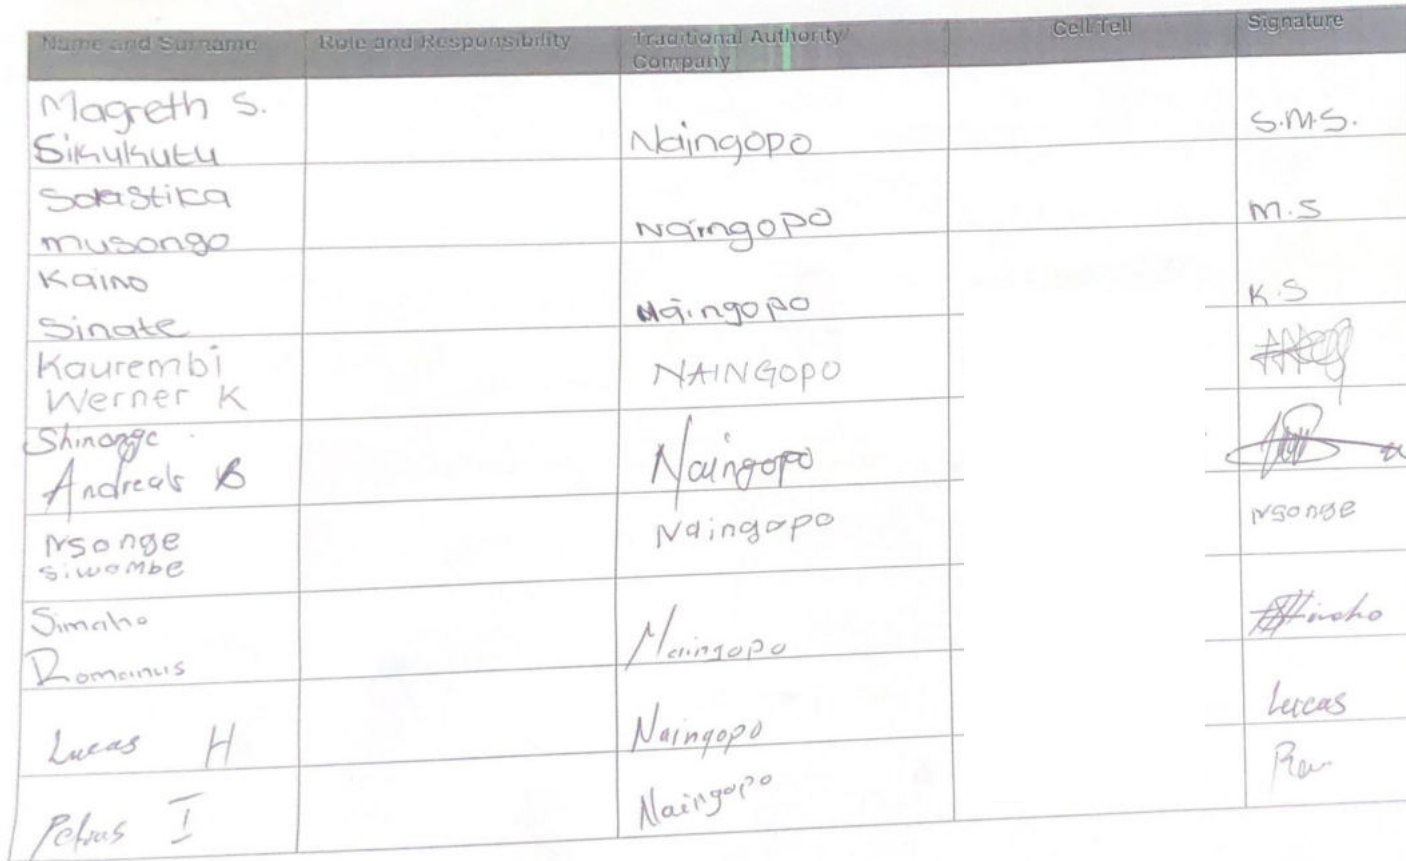 Name and Surname Role and Responsibility Traditional Authority/ Cell/Tell Signature
Company
Magreth S.
Sikukutu Naingopo S.M.S.
Solastika
musongo Naingopo M.S
Kaino
Sinate Naingopo K.S
Kaurembi
Werner K NAINGOPO
Shinonge
Andreals B Naingopo
Nsonge Naingopo Nsonge
siwombe
Simaho
Romanus Naingopo
Lucas H Naingopo Lucas
Petrus I Naingopo